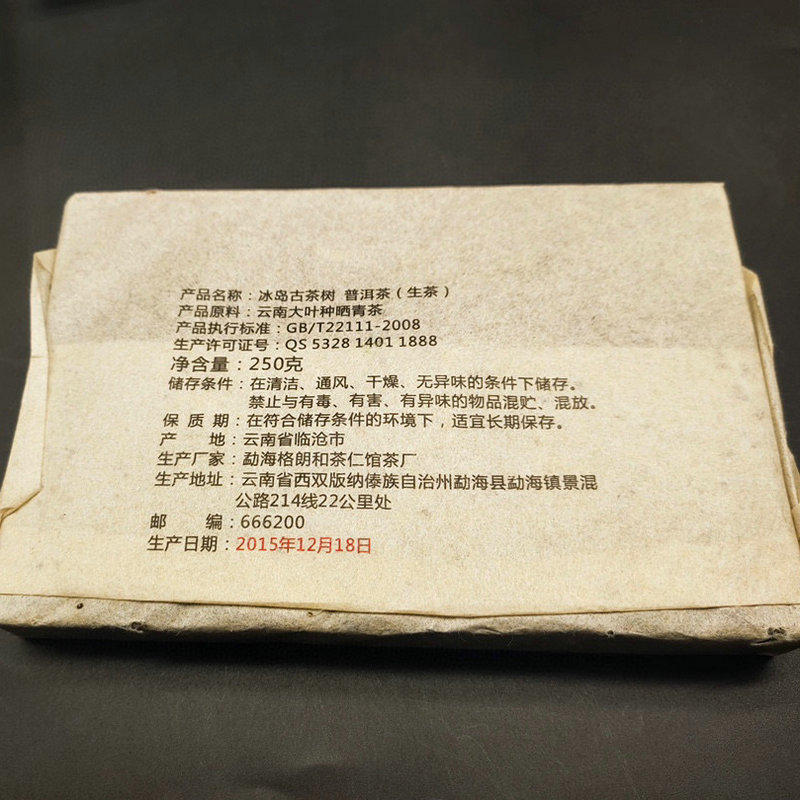 产品名称：冰岛古茶树 普洱茶（生茶）
产品原料：云南大叶种晒青茶
产品执行标准：GB/T22111-2008
生产许可证号：QS 5328 1401 1888
净含量：250克
储存条件：在清洁、通风、干燥、无异味的条件下储存。
禁止与有毒、有害、有异味的物品混贮、混放。
保 质 期：在符合储存条件的环境下，适宜长期保存。
产 地：云南省临沧市
生产厂家：勐海格朗和茶仁馆茶厂
生产地址：云南省西双版纳傣族自治州勐海县勐海镇景混
公路214线22公里处
邮 编：666200
生产日期：2015年12月18日